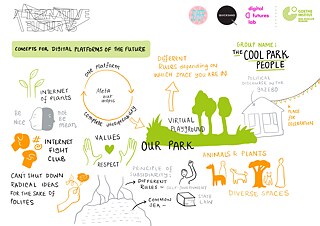 ALTERNATIVE
FUTURES
digital
futures
lab
GOETHE
INSTITUT
CONCEPTS FOR DIGITAL PLATFORMS OF THE FUTURE
GROUP NAME:
THE COOL PARK
PEOPLE
DIFFERENT
RULES depending on
WHICH SPACE YOU ARE IN
One platform
Meta
complete
INTERNET
OF PLANTS
BE
NICE
not
BE MEAN
# INTERNET
FIGHT
CLUB
VALUES
RESPECT
VIRTUAL
PLAYGROUND
OUR PARK
A
PLACE
FOR
CELEBRATION
CAN'T SHUT DOWN
RADICAL IDEAS
FOR THE SAKE OF
POLITES
PRINCIPLE OF
SUBSIDIARITY:
DIFFERENT
RULES
COMMON
SEA
STATE
LAW
ANIMALS & PLANTS
DIVERSE SPACES